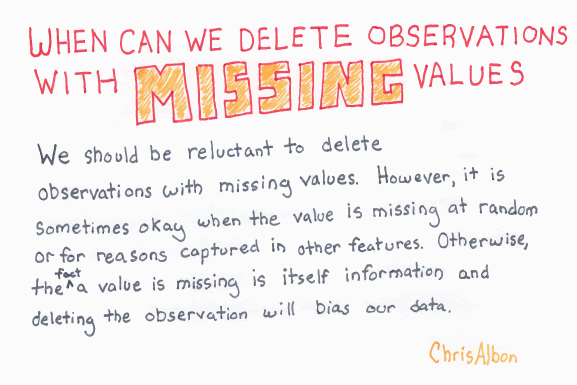 WHEN CAN WE DELETE OBSERVATIONS
WITH MISSING VALUES
We should be reluctant to delete
observations with missing values. However, it is
sometimes okay when the value is missing at random
or for reasons captured in other features. Otherwise,
the fact a value is missing is itself information and
deleting the observation will bias our data.
ChrisAlbon